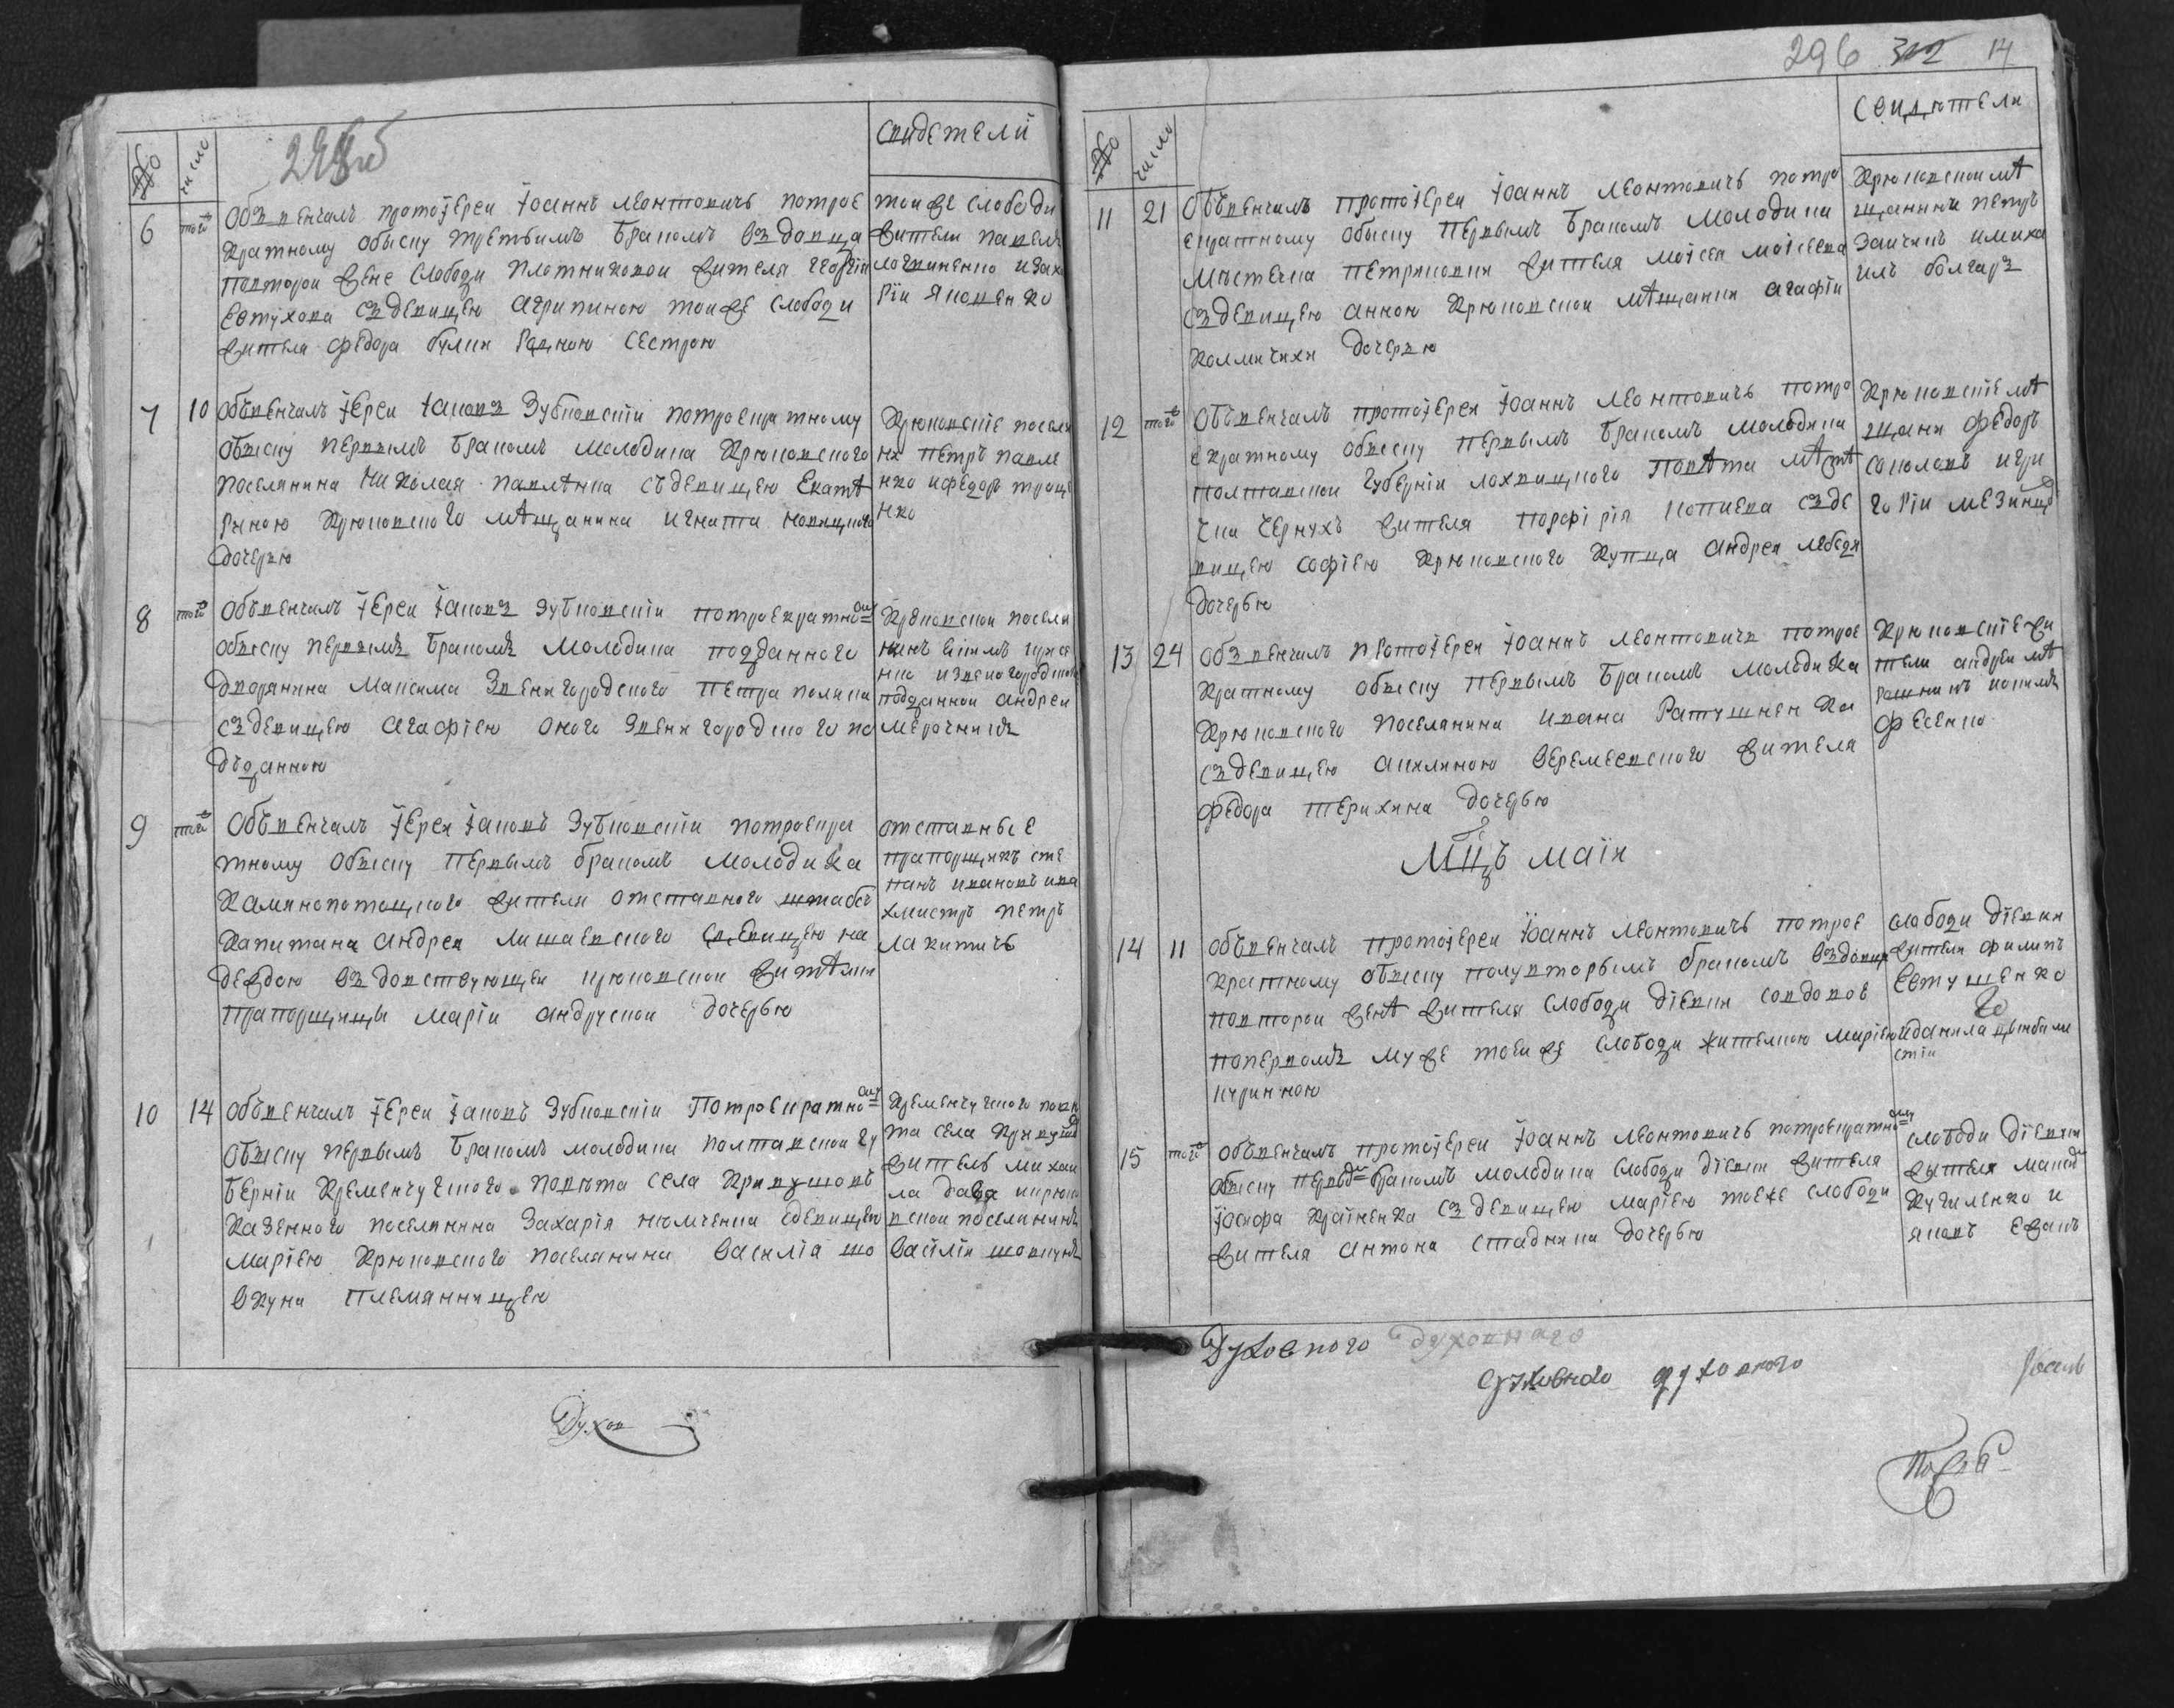 свидетели
№ число
6 того Объвенчалъ протоіереи Іоаннъ Леонтовичъ потрое
кратному обыску третьимъ бракомъ вздовца
повторои жене слободи Плотниковои жителя Георгія
Евтухова сздевицею Агрипиною тоиже слободи
жителя Федора булии родною сестрою
тоиже слободи
жители павелъ
и заха
рій Яковенко
7 10 Объвенчалъ іереи Іаковъ Зубковскіи потроекратному
обыску первымъ бракомъ молодика Крюковского
поселянина Николая павлѣнка съдевицею Екатѣ
риною Крюковского мѣщанина Игната новицкого
дочерью
Крюковскіе поселя
не Петръ павле
нко и Федоръ троце
нко
8 того Объвенчалъ іереи Іаковъ Зубковскіи потроекратному
обыску первымъ бракомъ молодика подданного
дворянина Максима Звенигородского Петра полина
сздевицею Агафіею оного Звенигородского по
дъданною
Крюковскои посели
нинъ
подданнои андреи
мерочникъ
9 того Объвенчалъ іереи Іаковъ Зубковскіи потроекра
тному обыску первымъ бракомъ молодика
Каминопотоцкого жителя отставного штабсъ
Капитана Андрея Лишаевского сдевицею на
деждою вздовствующеи крюковскои житѣлки
прапорщицы Маріи Андрускои дочерью
отставные
прапорщикъ сте
панъ ивановъ ива
хмистръ петръ
Лакитичъ
10 14 Объвенчалъ іереи Іаковъ Зубковскіи Потроекратному
обыску первымъ бракомъ молодика полтавскои гу
берніи Кременчугского повѣта села Кривушовъ
Казенного поселянина Захарія сдевицею
маріею Крюковского поселянина Василія шо
вкуна племянницею
Кременчугского повѣ
та села Кривушов
житель михаи
ла Дава икрюко
вскои поселининъ
Василіи шовкунъ
Духов
296 312 14
свидѣтели
№ число
11 21 Объвенчалъ протоіереи Іоаннъ Леонтовичъ потро
екратному обыску первымъ бракомъ молодика
мѣстечка Петриковки жителя Моісея Моісеева
сздевицею Анною Крюковскои мѣщанки Агафіи
Калмичихи дочерью
Крюковскои мѣ
щанинъ петръ
Заичикъ и миха
илъ болгаръ
12 того Объвенчалъ протоіереи Іоаннъ Леонтовичъ потро
екратному обыску первымъ бракомъ молодика
полтавскои губерніи лохвицкого повѣта мѣстѣ
чка Чернухъ жителя Порфірія сзде
вицею Софіею Крюковского Купца Андрея лебедя
дочерью
Крюковскіе мѣ
щани Федоръ
соколовъ игри
горіи мезинцо
13 24 Объвенчалъ протоіереи Іоаннъ Леонтовичъ потрое
кратному обыску первымъ бракомъ молодика
Крюковского поселянина Ивана Ратушненка
сздевицею акилиною Веремеевского жителя
Федора Терихина дочерью
Крюковскіе жи
тели андреи мѣ
рошникъ
фесенко
Мцъ Маія
14 11 Объвенчалъ протоіереи Іоаннъ Леонтовичъ потрое
кратному обыску полувторымъ бракомъ вздовца
повторои женѣ жителя слободи Діевки совдовов
попервомъ муже тоеиже слободи жителкою Маріею
куринною
слободи діевки
жители филипъ
Евтушенко
иданила цимбали
стіи
15 того Объвенчалъ протоіереи Іоаннъ Леонтовичъ потроекратному
обыску первымъ бракомъ молодика слободи Діевки жителя
Іосифа Краіненка сздевицею маріею тоеже слободи
жителя Антона стадника дочерью
слободи Діевки
жителя
Кучиленко и
яковъ
Духовного духовнаго
духовного духовного